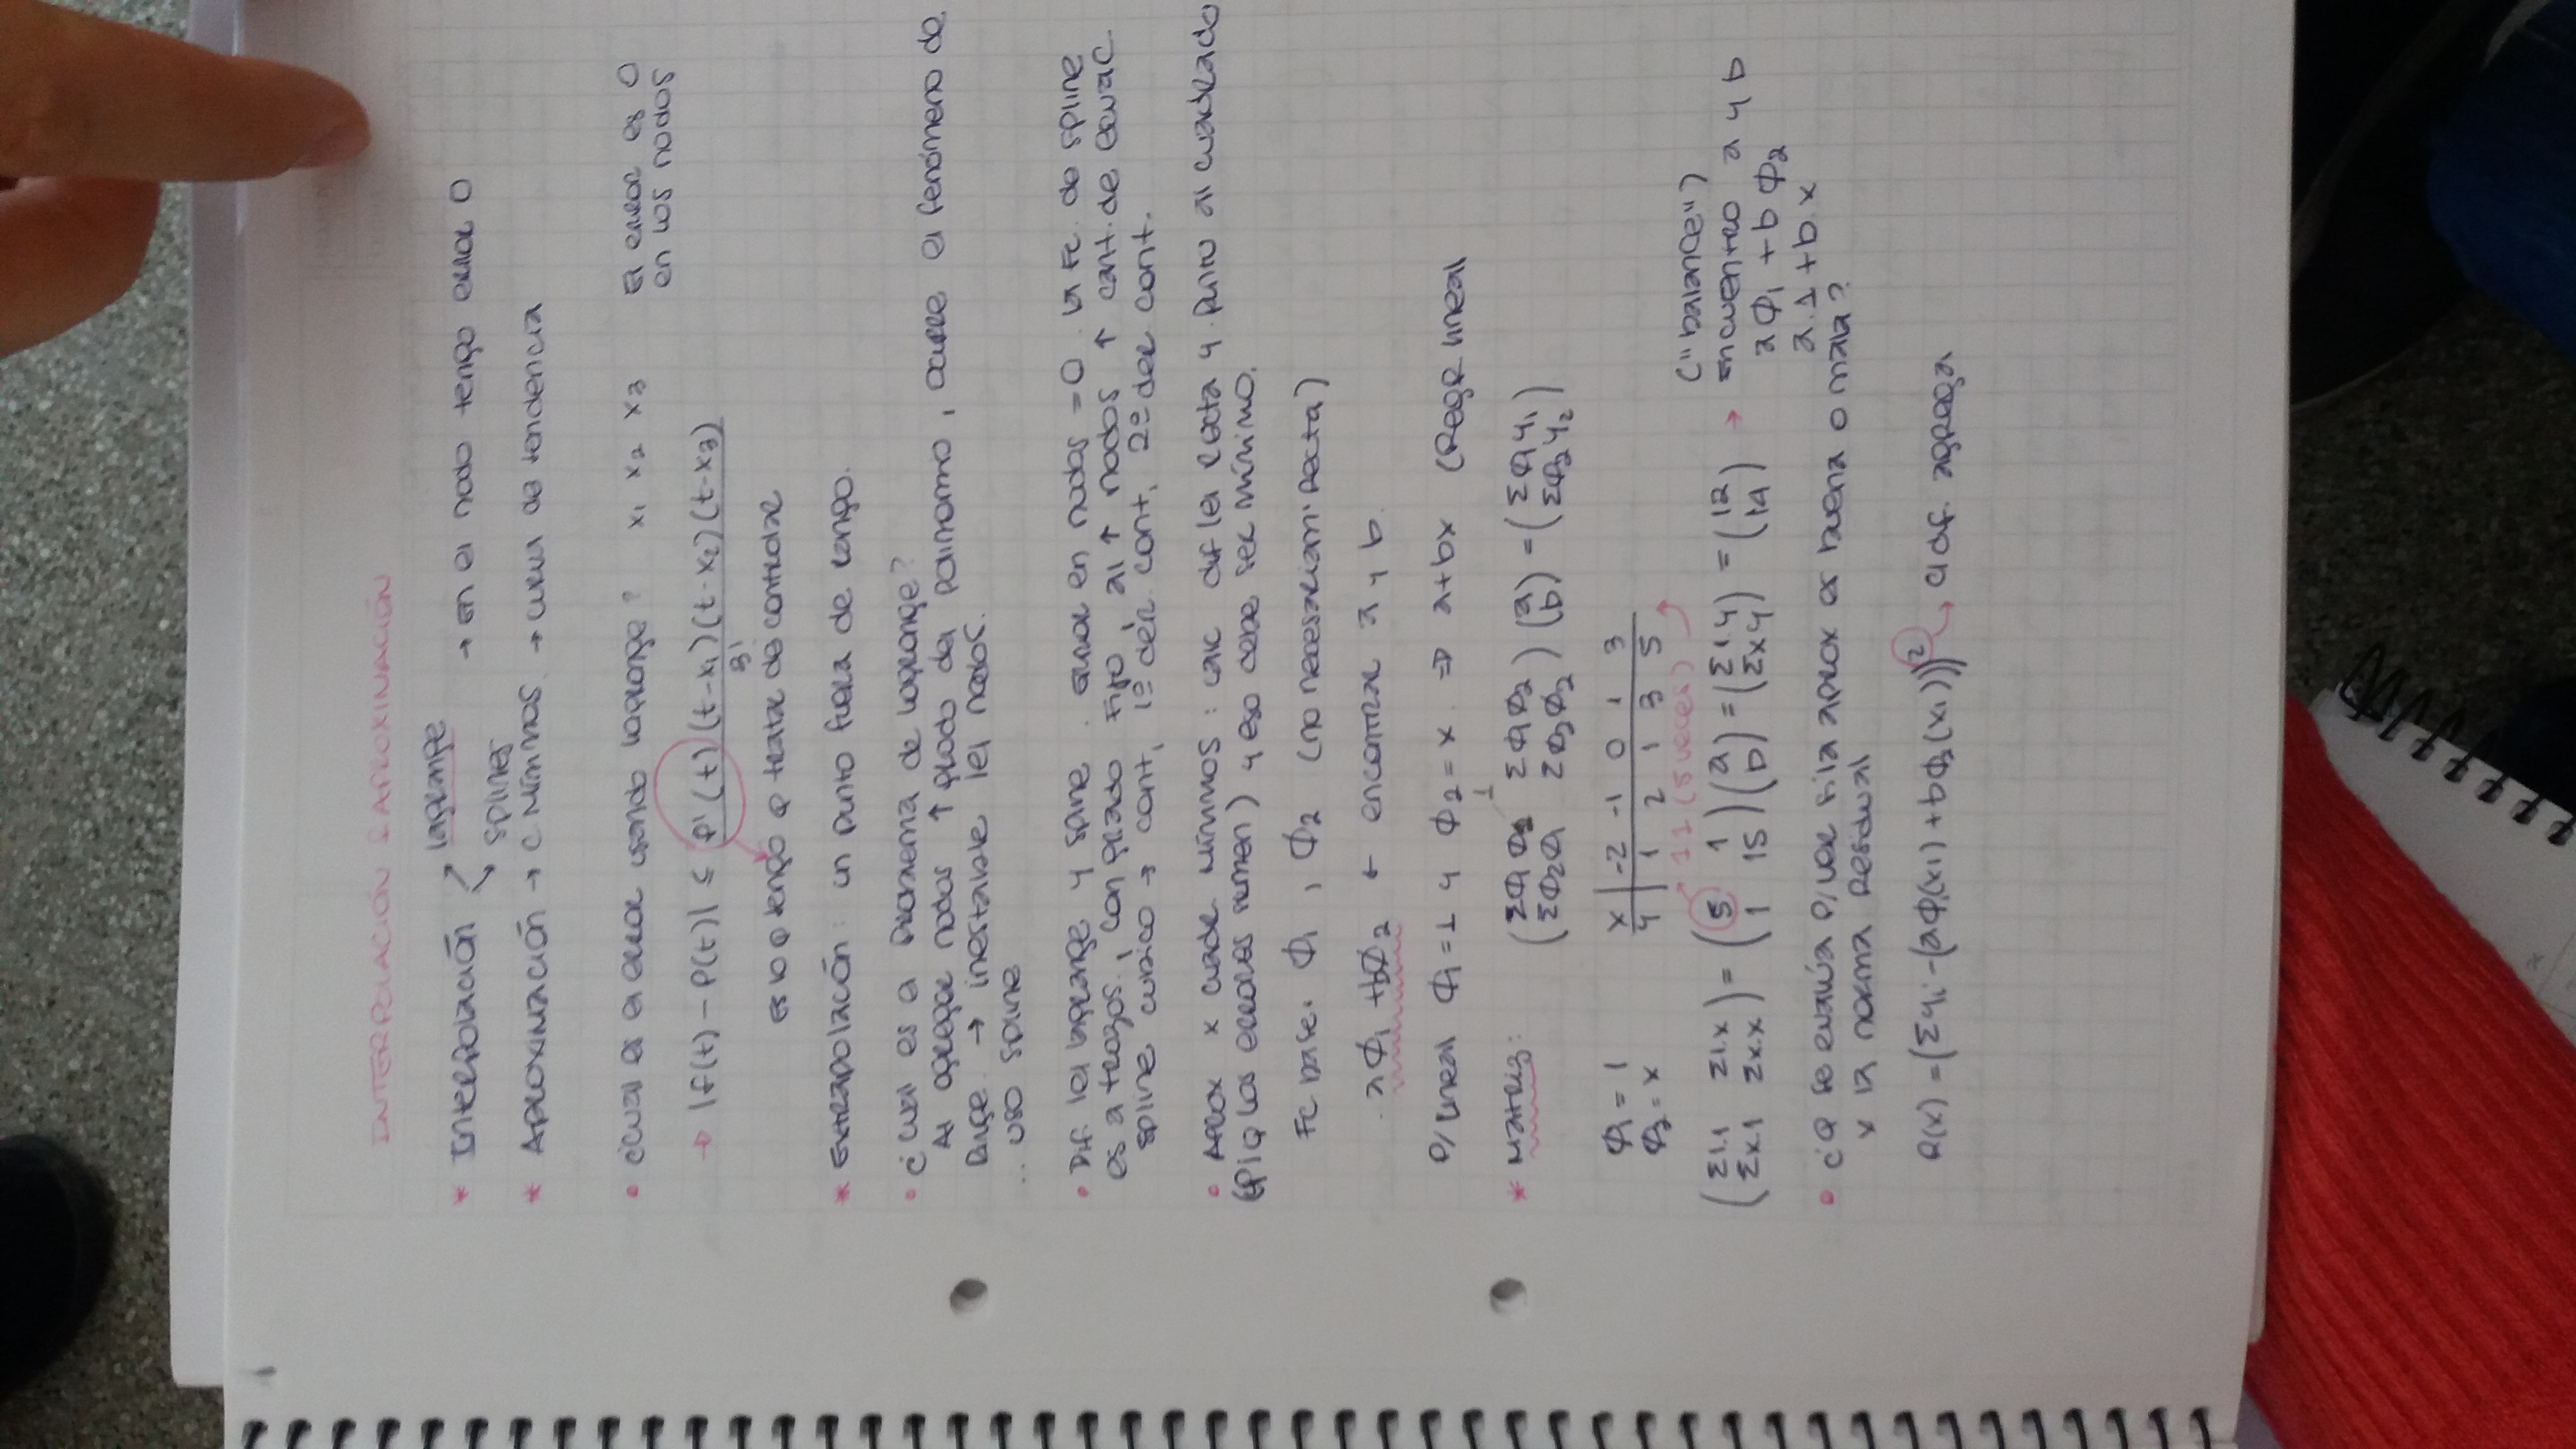 INTERPOLACIÓN & APROXIMACIÓN
* Interpolación lagrange → en el nodo tengo error 0
splines
* Aproximación → C Mínimos → curva de tendencia
• ¿Cual es el error usando lagrange? x₁ x₂ x₃ El error es 0
en los nodos
→ |f(t) - P(t)| ≤ f'(t)(t-x₁)(t-x₂)(t-x₃)
3!
es lo q tengo q tratar de controlar
* Extrapolación: un punto fuera de rango.
• ¿Cual es el problema de lagrange?
Al agregar nodos ↑ grado del polinomio, ocurre el fenómeno de
Runge → inestable /e/ nodos.
∴ uso spline
• Dif. /e/ lagrange y spline. Error en nodos = 0. La Fc. de spline
es a trozos, con grado fijo, al ↑ nodos ↑ cant. de ecuac.
spline cubico → cont, 1º der. cont, 2º der cont.
• Aprox x cuadr. Mínimos: calc dif /e/ recta y punto al cuadrado
(p/q los errores sumen) y eso debe ser mínimo.
Fc base: Φ₁ , Φ₂ (no necesariam. recta)
aΦ₁ + bΦ₂ ← encontrar a y b
P/ lineal Φ₁ = 1 y Φ₂ = x ⇒ a+bx (Regr lineal
1
* Matriz: (ΣΦ₁Φ₁ ΣΦ₁Φ₂) (a) = (ΣΦ₁y₁)
(ΣΦ₂Φ₁ ΣΦ₂Φ₂) (b) (ΣΦ₂y₂)
Φ₁ = 1 x | -2 -1 0 1 3
Φ₂ = x y | 1 2 1 3 5
1.1 (5 veces)
("balance")
(Σ1.1 Σ1.x) = (5 1) (a) = (Σ1.y) = (12) → encuentro a y b
(Σx.1 Σx.x) (1 15) (b) (Σxy) (14) aΦ₁ + bΦ₂
a.1 + b.x
• ¿Q se evalúa p/ver si la aprox es buena o mala?
x la norma Residual
R(x) = (Σyᵢ - (aΦ₁(x₁) + bΦ₂(x₁)))² → c/ dif. agrega